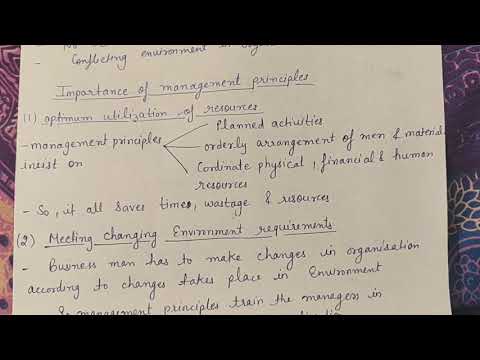 Conflicting environment
Importance of management principles
(1) optimum utilization of resources
Planned activities
- management principles
insist on
orderly arrangement of men & materials
Cordinate physical, financial & human
resources
- So, it all saves time, wastage & resources
(2) Meeting changing Environment requirements
- Business man has to make changes in organisation
according to changes takes place in Environment
& management principles train the managers in